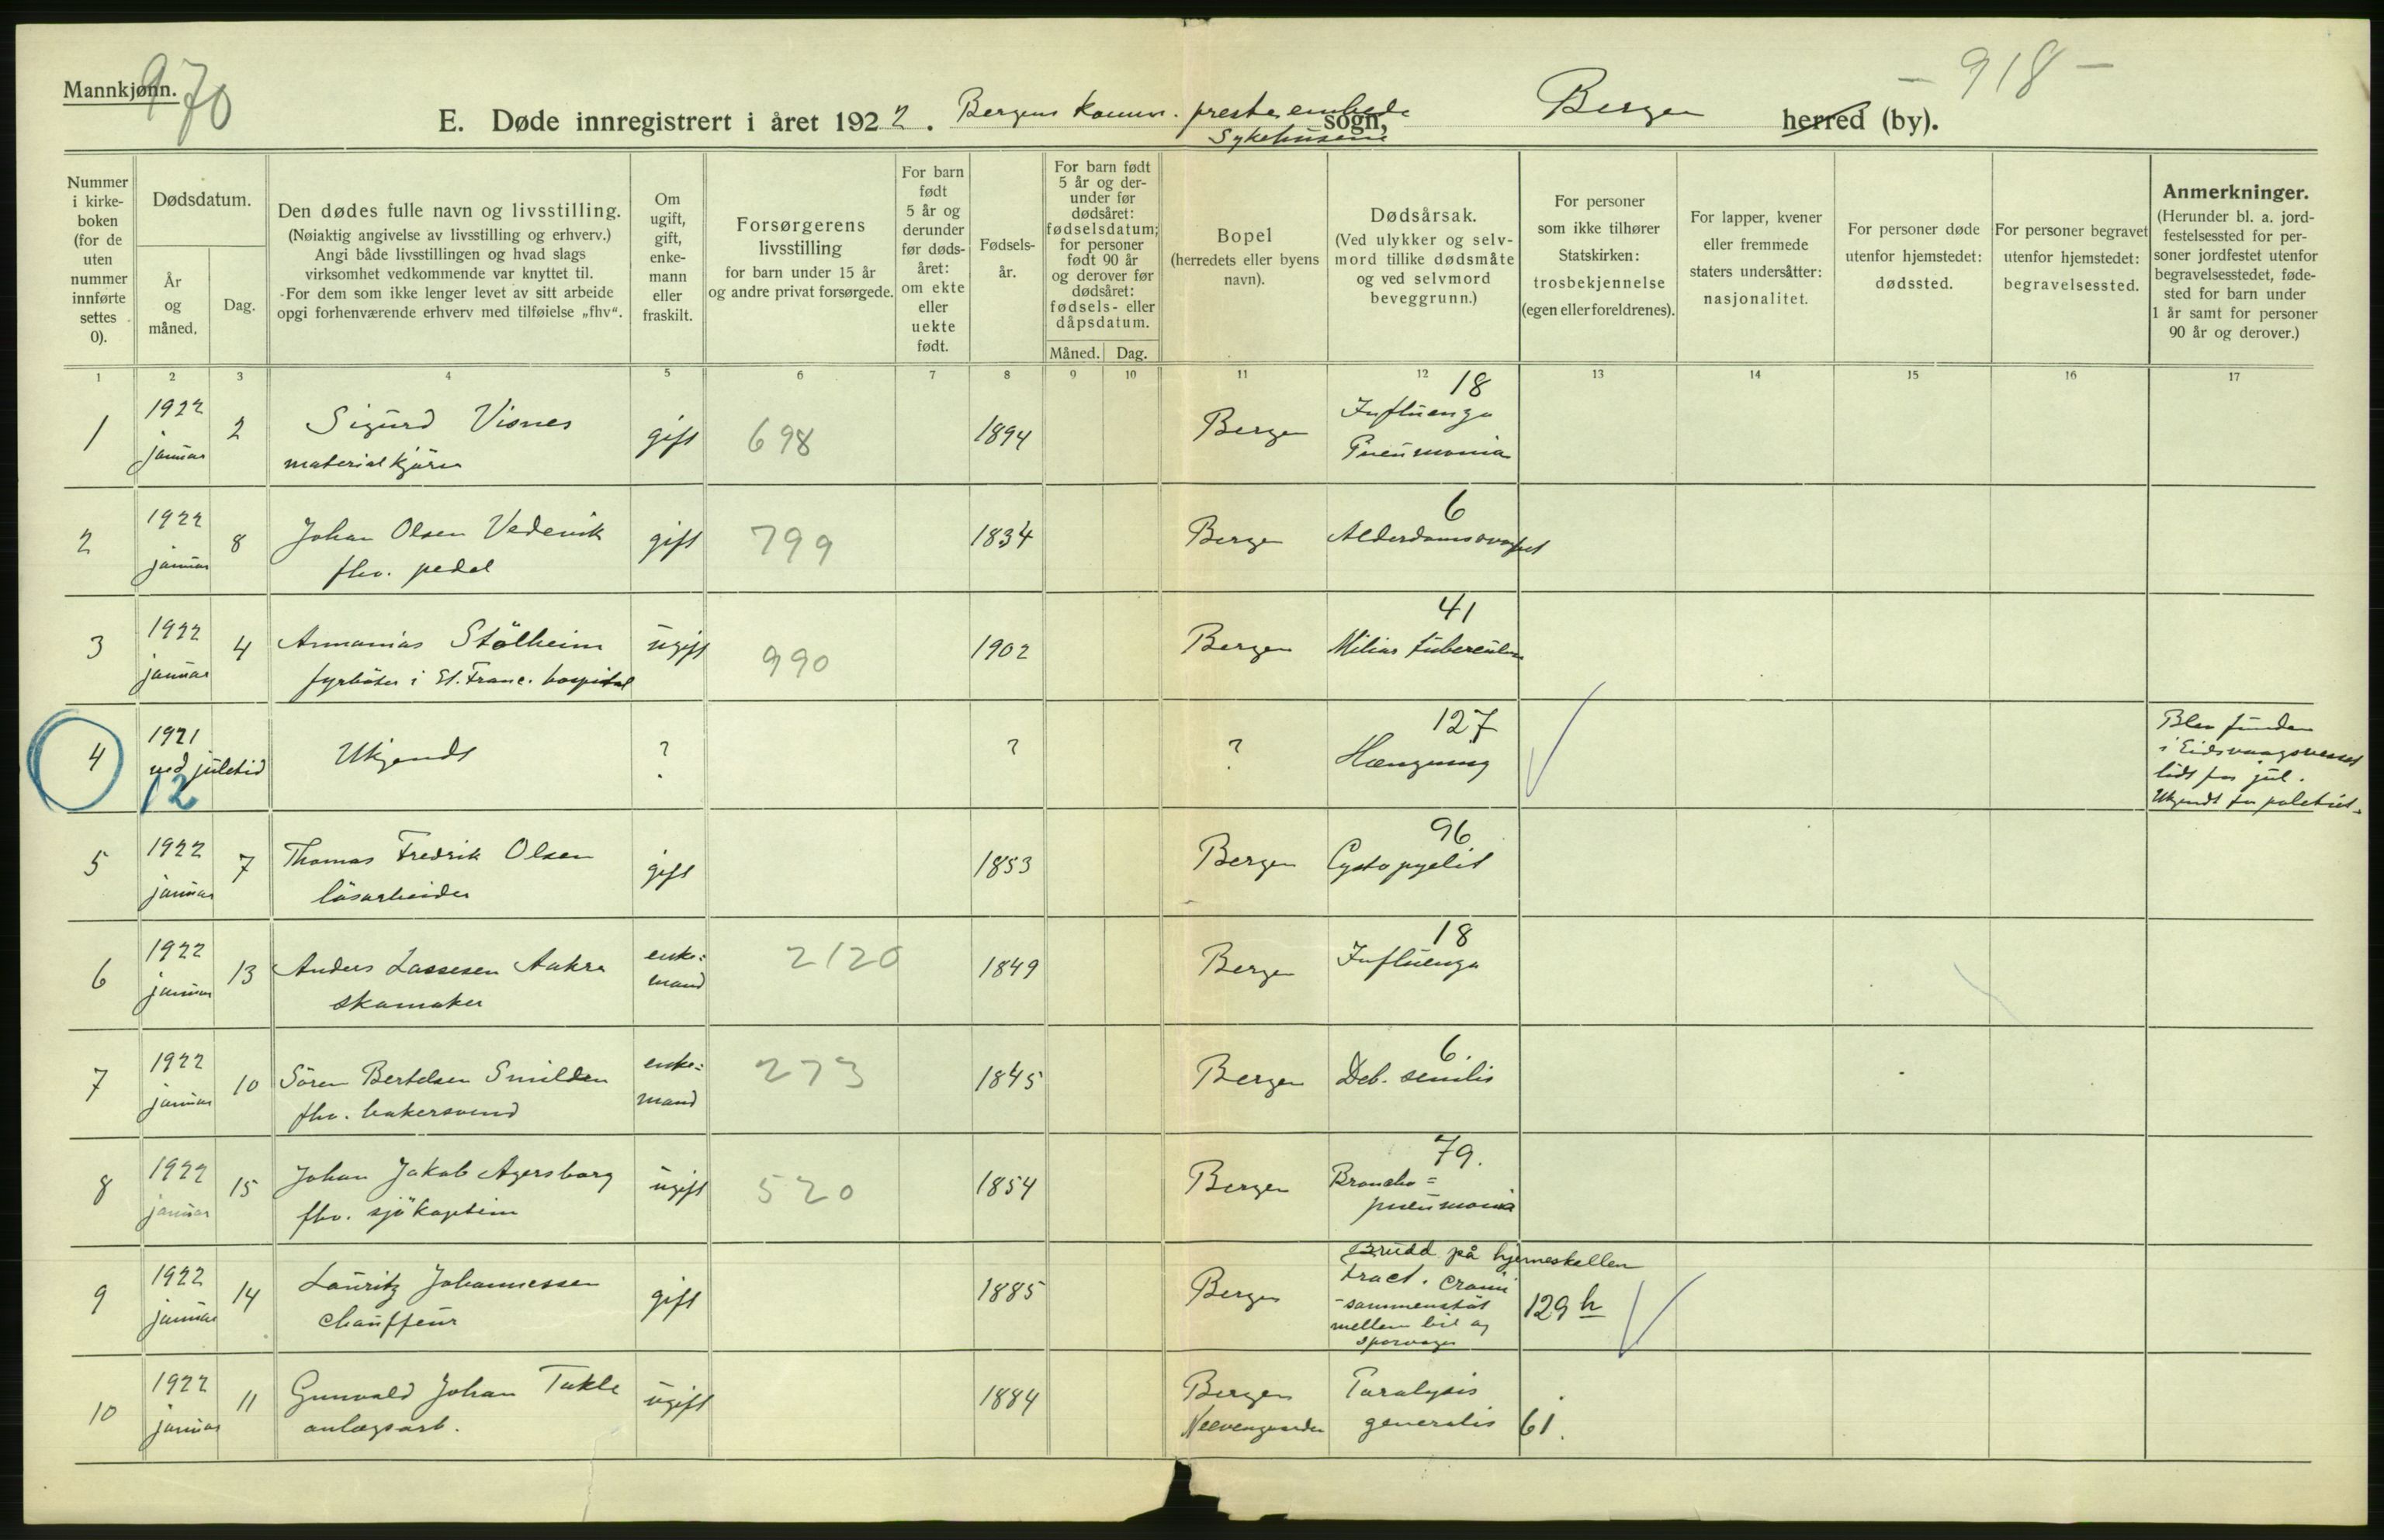 Mannkjønn.
970
- 918 -
E. Døde innregistrert i året 1922. Bergens komm. presteembede sogn, Bergen herred (by).
Sykehusene
Nummer i kirkeboken (for de uten nummer innførte settes 0).
Dødsdatum.
År og måned.
Dag.
Den dødes fulle navn og livsstilling.
(Nøiaktig angivelse av livsstilling og erhverv.)
Angi både livsstillingen og hvad slags
virksomhet vedkommende var knyttet til.
-For dem som ikke lenger levet av sitt arbeide
opgi forhenværende erhverv med tilføielse „fhv“.
Om ugift, gift, enkemann eller fraskilt.
Forsørgerens livsstilling
for barn under 15 år
og andre privat forsørgede.
For barn født 5 år og derunder før dødsåret: om ekte eller uekte født.
Fødselsår.
For barn født 5 år og derunder før dødsåret: fødselsdatum; for personer født 90 år og derover før dødsåret: fødsels- eller dåpsdatum.
Måned. Dag.
Bopel
(herredets eller byens navn).
Dødsårsak.
(Ved ulykker og selvmord tillike dødsmåte og ved selvmord beveggrunn.)
For personer som ikke tilhører Statskirken: trosbekjennelse (egen eller foreldrenes).
For lapper, kvener eller fremmede staters undersåtter: nasjonalitet.
For personer døde utenfor hjemstedet: dødssted.
For personer begravet utenfor hjemstedet: begravelsessted.
Anmerkninger.
(Herunder bl. a. jordfestelsessted for personer jordfestet utenfor begravelsesstedet, fødested for barn under 1 år samt for personer 90 år og derover.)
1 2 3 4 5 6 7 8 9 10 11 12 13 14 15 16 17
1 1922 januar 2 Sigurd Visnes gift 698 1894 Bergen 18 Influenza
materialkjører Pneumonia
2 1922 januar 8 Johan Olsen Vedervik gift 799 1834 Bergen 6 Alderdomssvaghet
fhv. pedel
3 1922 januar 4 Annanias Stölheim ugift 990 1902 Bergen 41 Miliar tuberculose
fyrböter i St. Franc. hospital
4 1921 ved juletid Ukjendt ? ? ? 127 Hængning
12
Blev funden
i Eidsvaagsveiet
lidt før jul.
Ukjendt for politiet.
5 1922 januar 7 Thomas Fredrik Olsen gift 1853 Bergen 96 Cystopyelit
løsarbeider
6 1922 januar 13 Anders Lassesen Aakre enke= mand 2120 1849 Bergen 18 Influenza
skomaker
7 1922 januar 10 Sören Bertelsen Smilden enke= mand 273 1845 Bergen 6. Deb. senilis
fhv. bakersvend
8 1922 januar 15 Johan Jakob Agersborg ugift 520 1854 Bergen 79. Broncho=
fhv. sjökaptein pneumonia
9 1922 januar 14 Lauritz Johannessen gift 1885 Bergen Brudd på hjerneskallen
chauffeur Fract. cranii
-sammenstöt 129 h
mellem bil og
sporvogn
10 1922 januar 11 Gunvald Johan Takle ugift 1884 Bergen Paralysis
anlægsarb. Neevengaarden generalis 61.